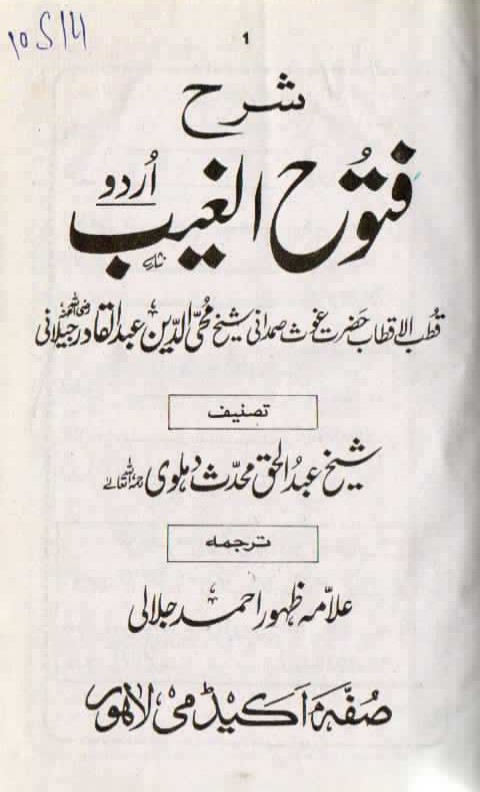 1
شرح
فتوح الغیب اُردو
قطب الاقطاب حضرت غوث صمدانی شیخ محی الدین عبدالقادر جیلانی
تصنیف
شیخ عبدالحق محدّث دہلوی رحمۃ اللہ تعالیٰ
ترجمہ
علامہ ظہور احمد جلالی
صُفّہ اکیڈمی لاہور